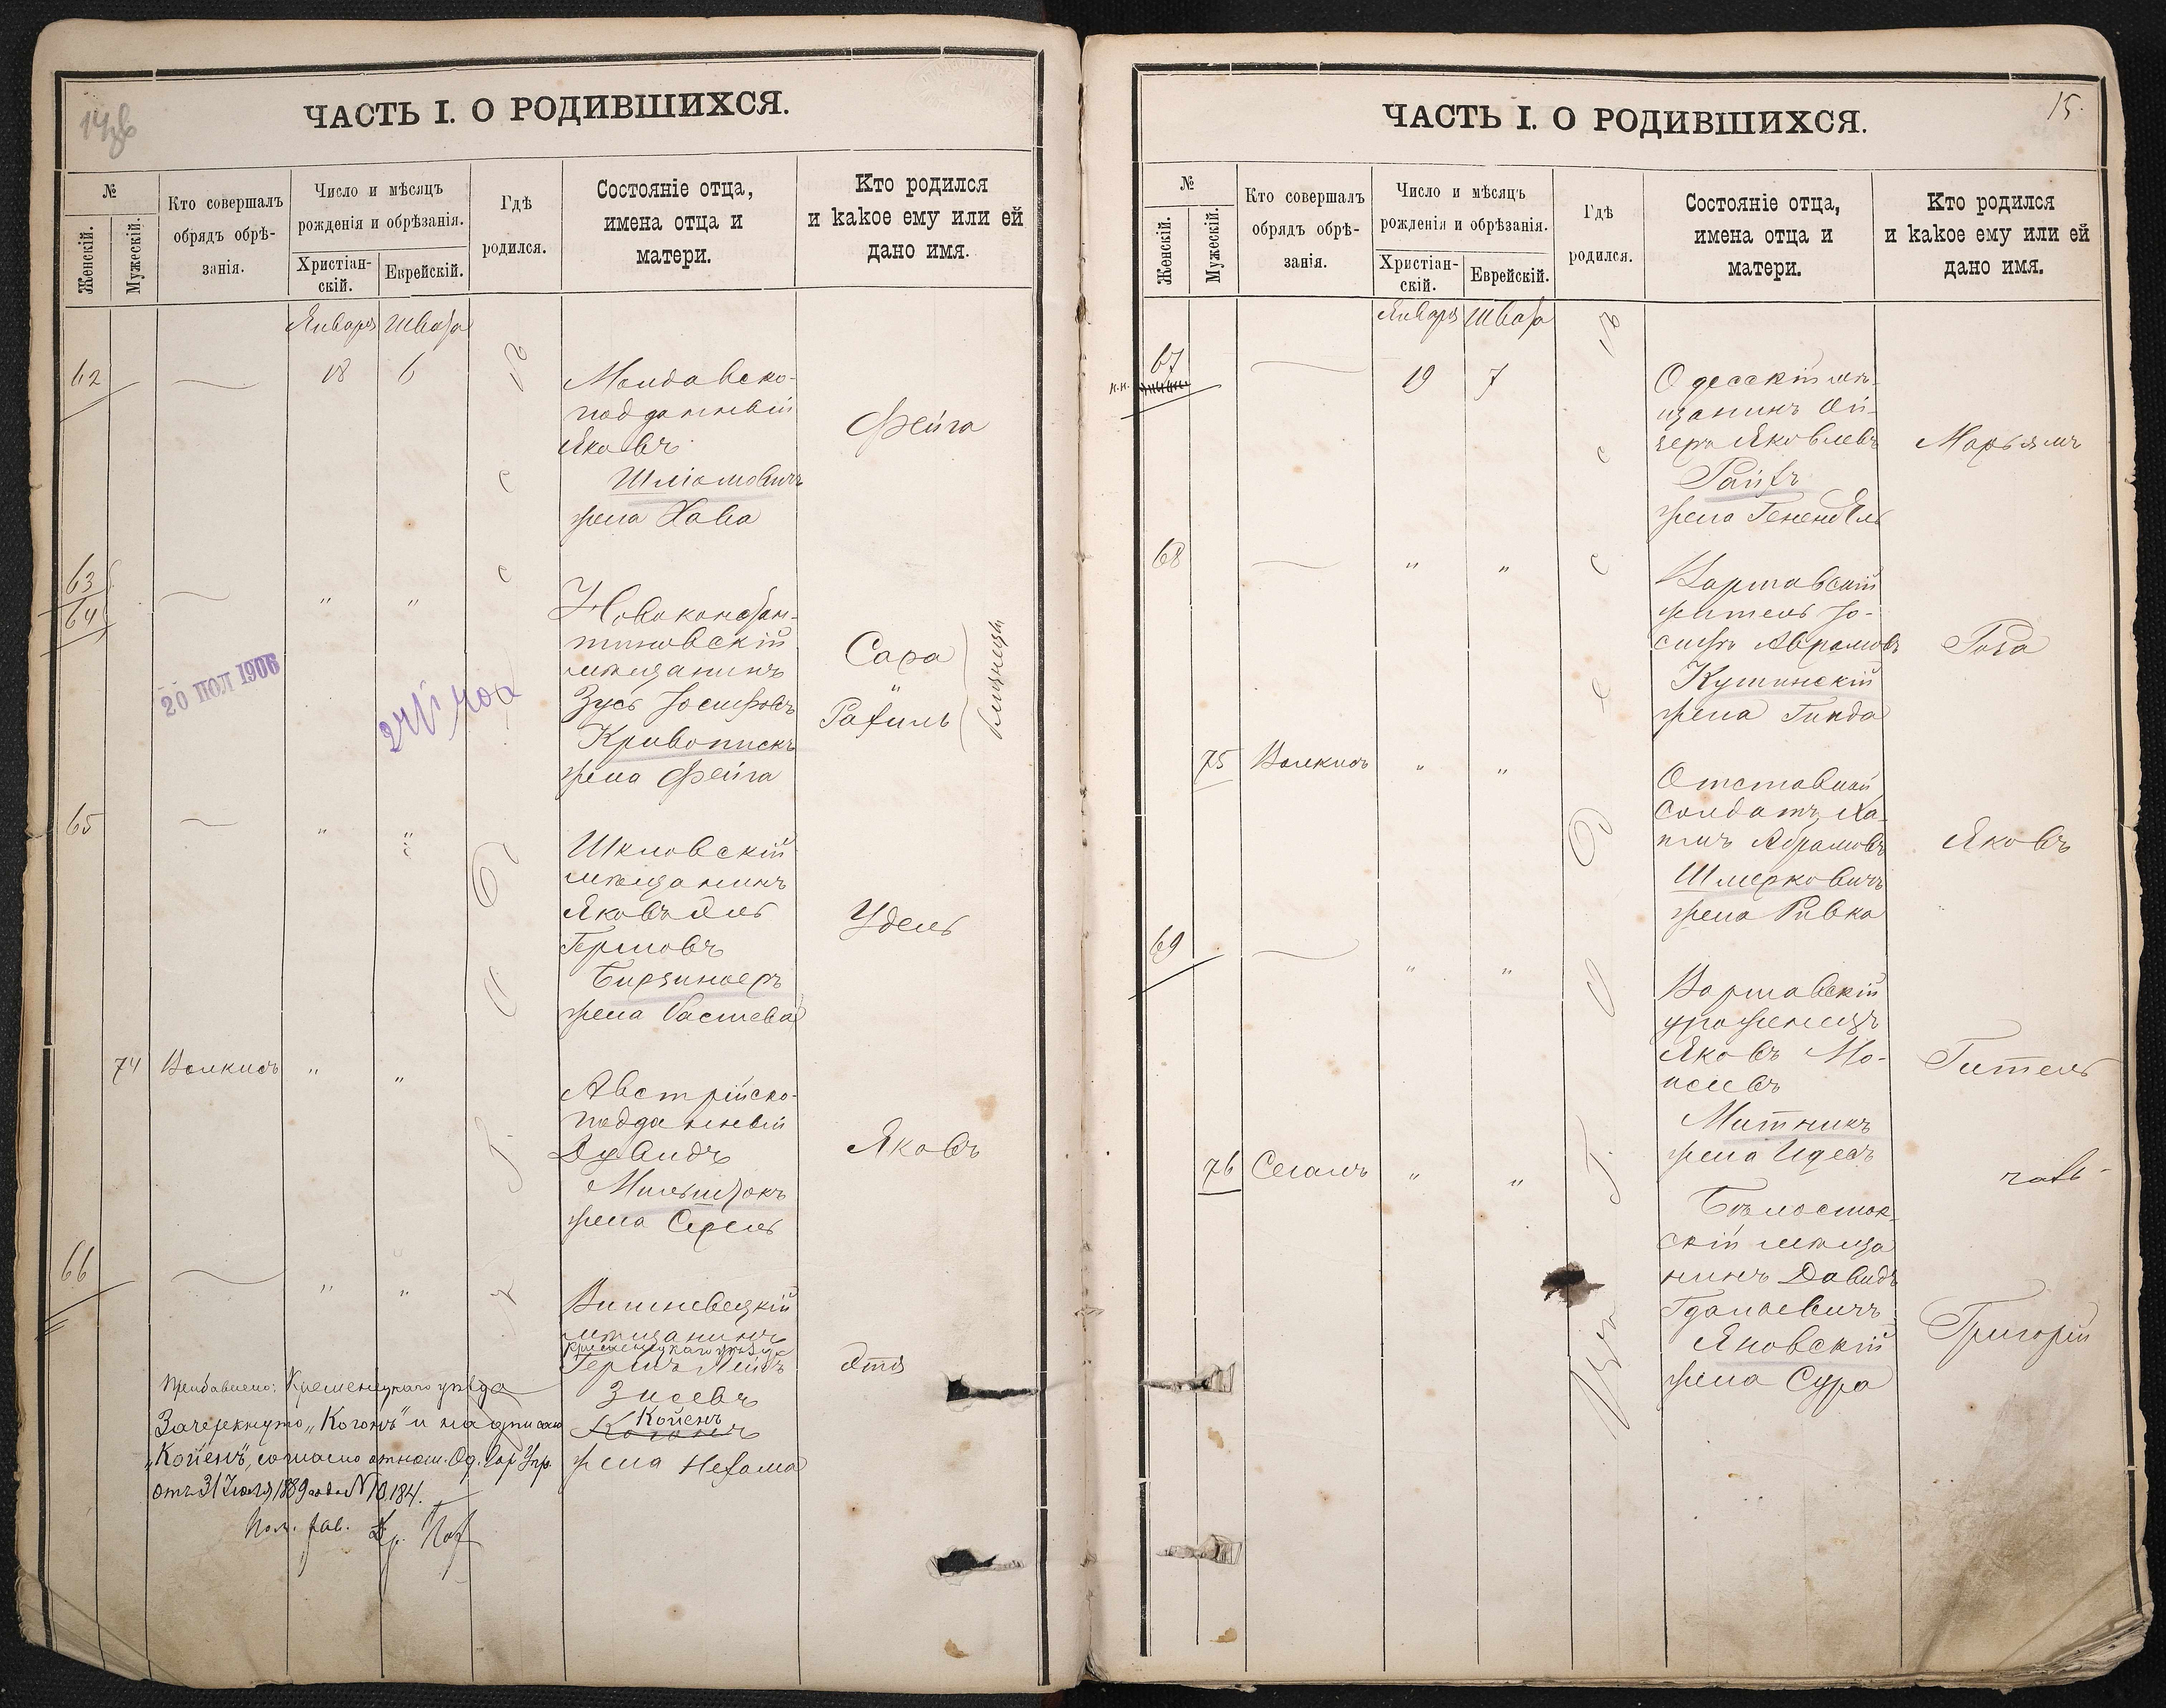 ЧАСТЬ I. О РОДИВШИХСЯ.
№
Женскій.
Мужескій.
Кто совершалъ
обрядъ обрѣ-
занія.
Число и мѣсяцъ
рожденія и обрѣзанія.
Христіан-
скій.
Еврейскій.
Гдѣ
родился.
Состояніе отца,
имена отца и
матери.
Кто родился
и какое ему или ей
дано имя.
Января Швата
62 18 6
Молдавско-
подданный
Яковъ
Шліомовичъ
жена Хава
Фейга
63
64
" "
Новоконстан-
тиновскій
мѣщанинъ
Зусь Іосифовъ
Кривопискъ
жена Фейга
Сара
и
Рахиль
близнецы
20 ПОЛ 1906
65 " "
Шкловскій
мѣщанинъ
Яковъ
Гершовъ
жена
Удель
74 Волкисъ " "
Австрійско-
подданный
Давидъ
Мильштокъ
жена Серель
Яковъ
66 " "
Вишневецкій
мѣщанинъ
Кременецкаго уѣзда
Гершъ Лейбъ
Зисевъ
Койенъ
Когонъ
жена Нехама
Этя
Прибавлено: Кременецкаго уѣзда
Зачеркнуто „Когонъ" и надписано
„Койенъ", согласно отнош. Од. Гор. Упр.
отъ 31 Іюля 1889 года № 10.184.
ЧАСТЬ I. О РОДИВШИХСЯ.
15.
№
Женскій.
Мужескій.
Кто совершалъ
обрядъ обрѣ-
занія.
Число и мѣсяцъ
рожденія и обрѣзанія.
Христіан-
скій.
Еврейскій.
Гдѣ
родился.
Состояніе отца,
имена отца и
матери.
Кто родился
и какое ему или ей
дано имя.
Января Швата
67 19 7
Одесскій мѣ-
щанинъ Ой-
зеръ Яковлевъ
Райхъ
жена Генендель
Марьямъ
68 " "
Варшавскій
житель Іо-
сифъ Абрамовъ
Кушинскій
жена Гинда
Роза
75 Волкисъ " "
Отставной
солдатъ Ха-
имъ Абрамовъ
Шмерковичъ
жена Ривка
Яковъ
69 " "
Варшавскій
уроженецъ
Яковъ Мо-
исеевъ
Митникъ
жена Идесъ
Гитель
76 Сегалъ " "
Бѣлосток-
скій мѣща
нинъ Давидъ
Гдальевичъ
Яновскій
жена Сура
Григорій